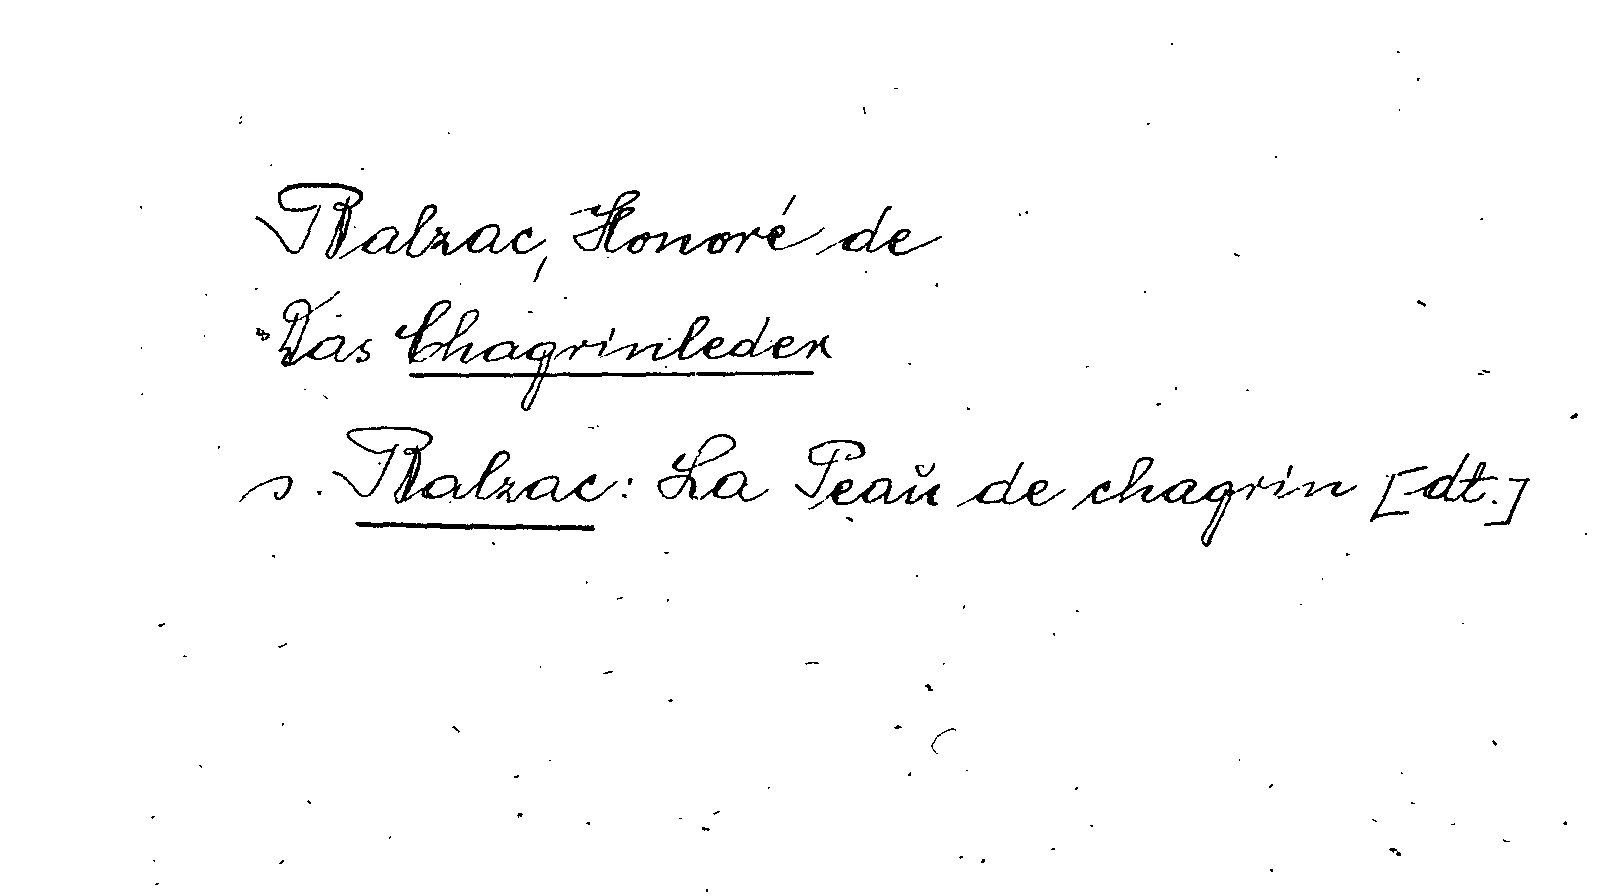 Balzac, Honoré de
Das Chagrinleder
s. Balzac: La Peau de chagrin [dt.]